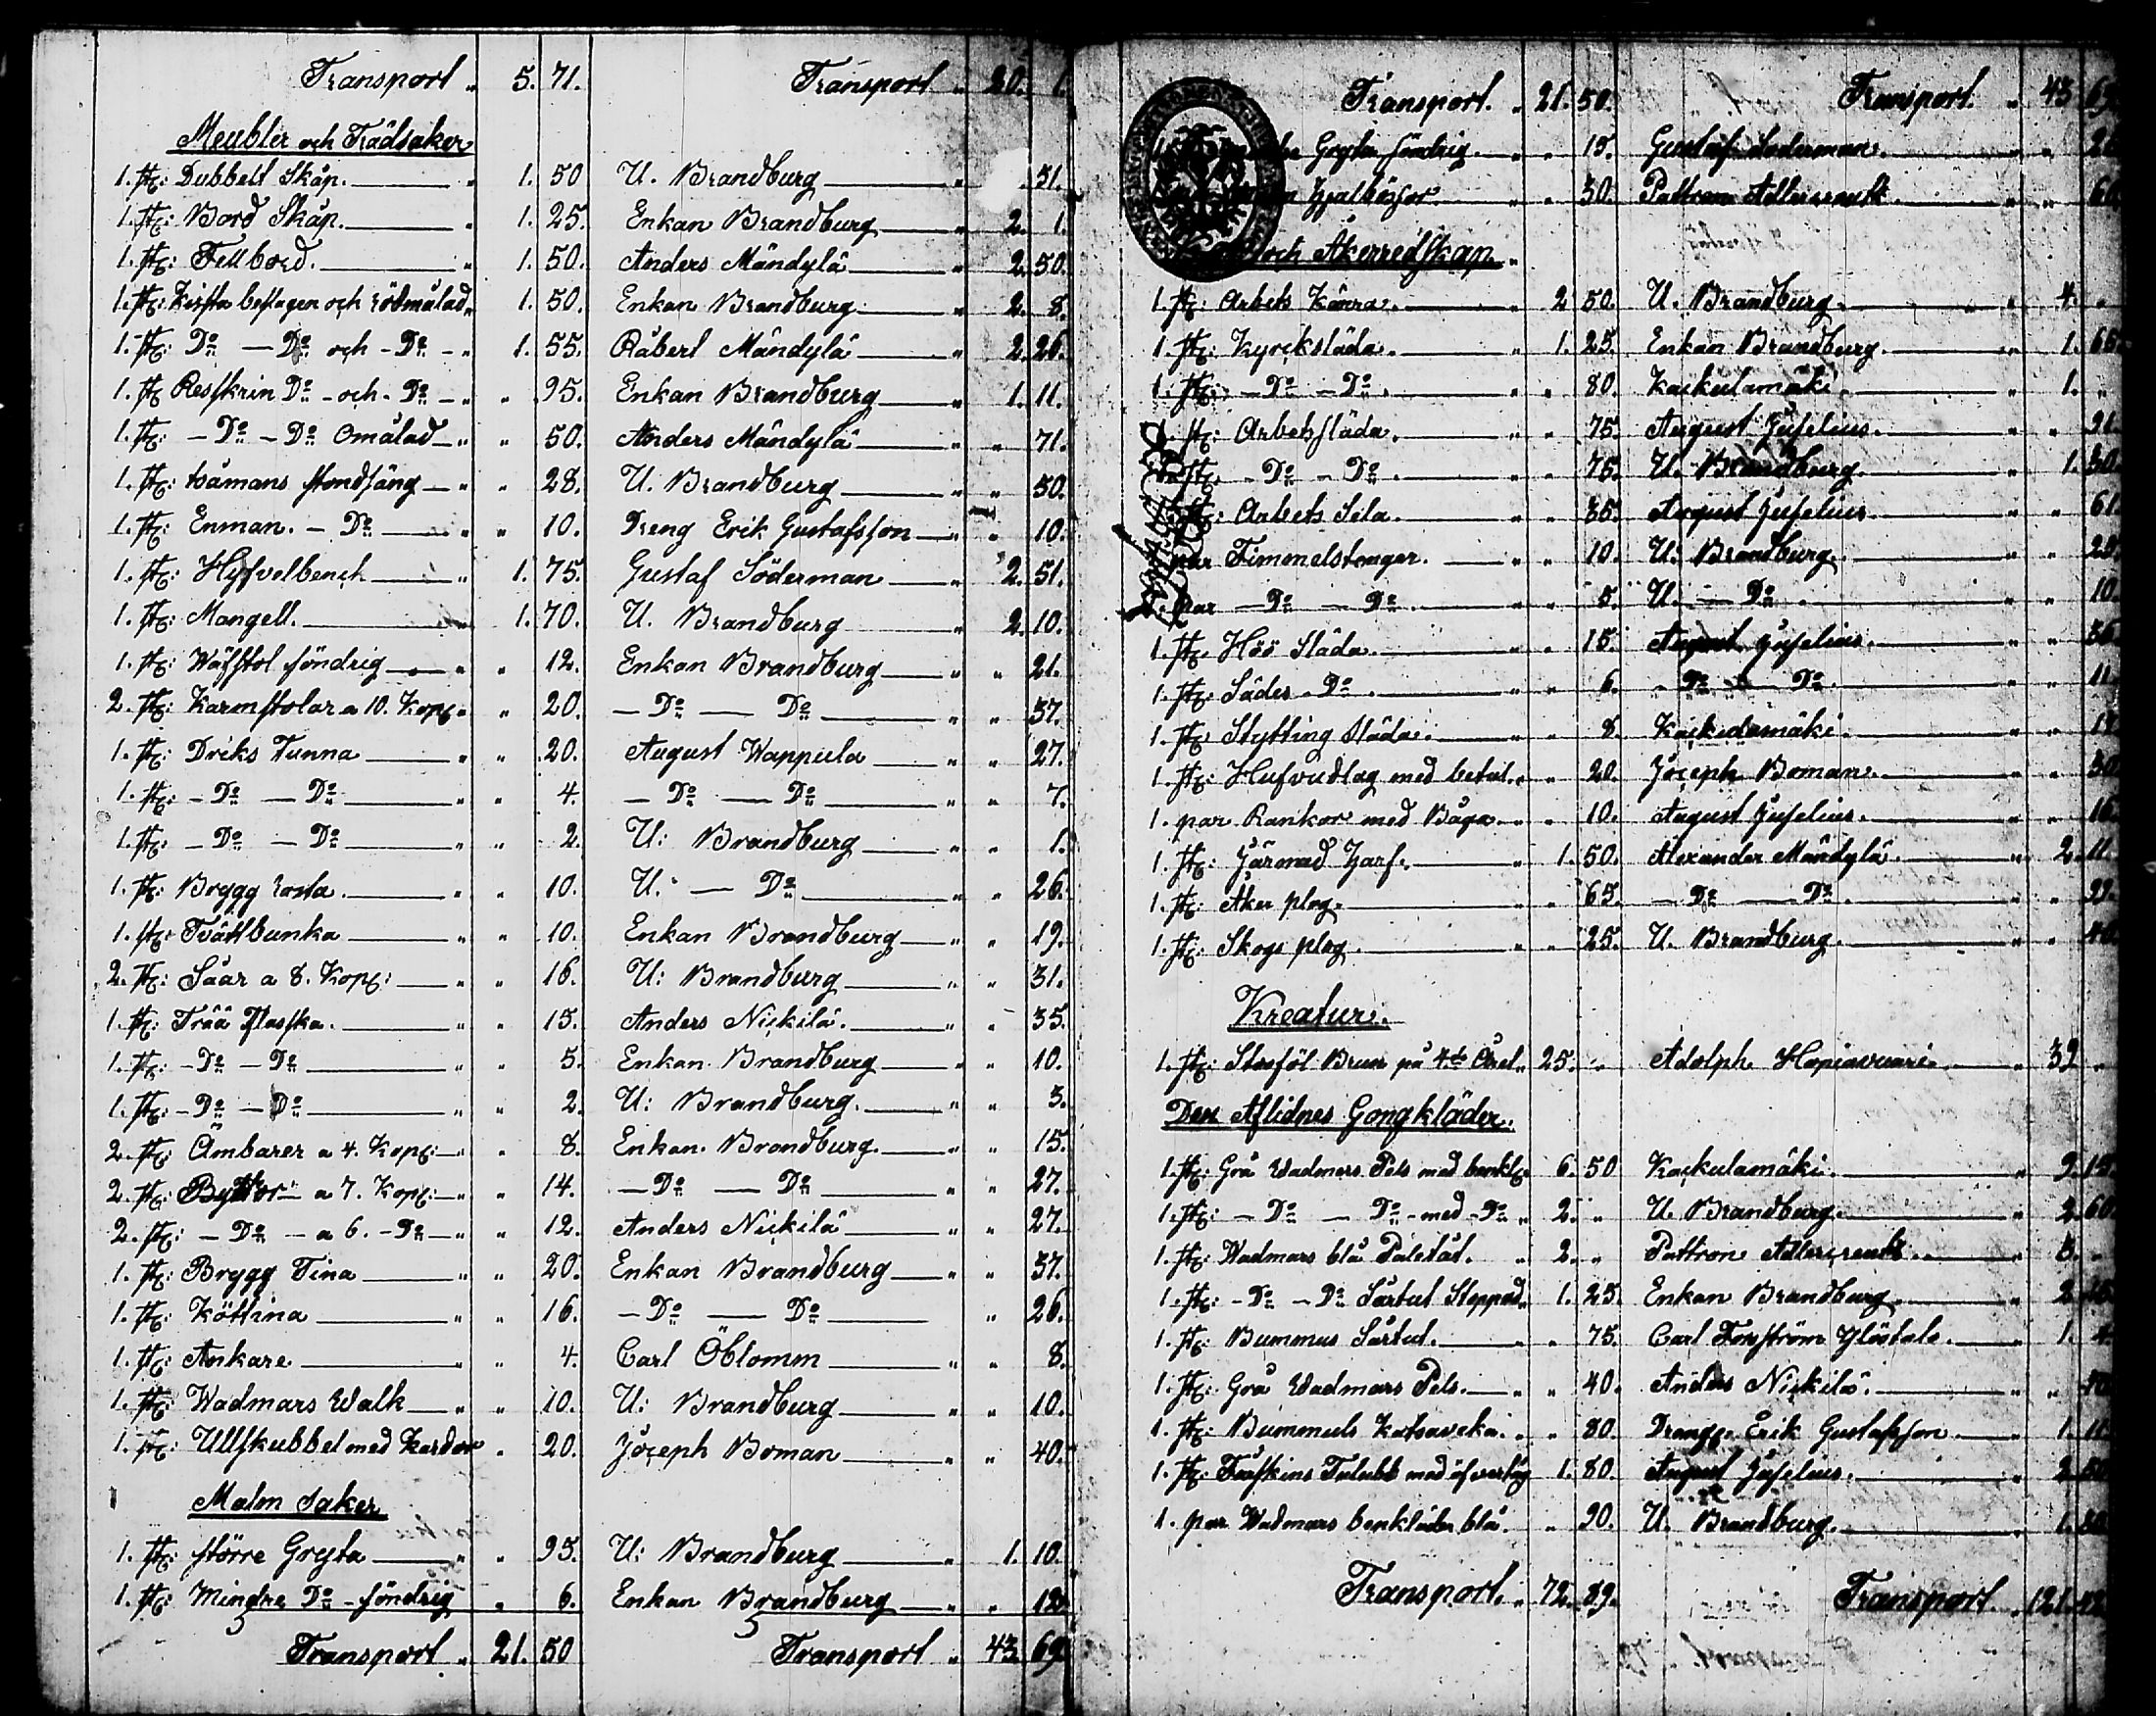 Transport " 5. 71. Transport " 20. 1.
Meubler och Trädsaker
1. st: Dubbelt Skåp. " 1. 50 U. Brandburg " 51.
1. st: Bord Skåp. " 1. 25. Enkan Brandburg " 2. 1.
1. st: Fellbord. " 1. 50. Anders Mändylä " 2. 50.
1. st: Kista beslagen och rödmålad " 1. 50. Enkan Brandburg " 2. 8.
1. st: Do — Do och - Do - " 1. 55. Råbert Mändylä " 2. 26.
1. st Resskrin Do - och - Do - " " 95. Enkan Brandburg " 1. 11.
1. st: - Do - Do Omålad " " 50. Anders Mändylä " " 71.
1. st: tvåmans stondsäng " " 28. U. Brandburg " " 50.
1. st: Enman. - Do " " 10. Dreng Erik Gustafsson " " 10.
1. st: Hyfvelbench " 1. 75. Gustaf Söderman " 2. 51.
1. st: Mangell. " 1. 70. U. Brandburg " 2. 10.
1. st: Wäfstol söndrig " " 12. Enkan Brandburg " " 21.
2. st: Karmstolar a 10. Kop: " " 20. — Do — Do " " 37.
1. st: Driks Tunna " " 20. August Wappula " " 27.
1. st: - Do — Do " " 4. — Do — Do " " 7.
1. st: - Do — Do " " 2. U: Brandburg " " 1.
1. st: Brygg rosta. " " 10. U. — Do " " 26.
1. st: Tvättbunka " " 10. Enkan Brandburg " " 19.
2. st: Såar a 8. Kop: " " 16. U: Brandburg " " 31.
1. st: Trää Flasska. " " 15. Anders Nickilä. " " 35.
1. st: - Do - Do " " 5. Enkan Brandburg " " 10.
1. st: - Do - Do " " 2. U: Brandburg. " " 3.
2. st: Ämbarer a 4. Kop: " " 8. Enkan Brandburg. " " 15.
2. st: Byttor a 7. Kop: " " 14. — Do — Do " " 27.
2. st: - Do - a 6. - Do " " 12. Anders Nickilä " " 27.
1. st: Brygg Tina " " 20. Enkan Brandburg " " 37.
1. st: Köttina " " 16. — Do — Do " 26.
1. st: Ankare " " 4. Carl Öblomm " " 8.
1. st: Wadmars Walk " " 10. U: Brandburg " " 10.
1. st: Ullskubbel med Kardor " 20. Joceph Boman " " 40.
Malm Saker
1. st: större Gryta " " 95. U: Brandburg " 1. 10.
1. st: Mindre Do - söndrig " 6. Enkan Brandburg " " 12.
Transport " 21. 50 Transport " 43. 69.
Transport. " 21. 50. Transport. " 43 69.
Gryta söndrig " " 15. Gustaf Soderman. " "
" " 30. Pattron Adlercreutz " "
och Åkerredskap
1. st: Arbets Kärra. " 2 50. U. Brandburg. " 4. "
1. st: Kyrckslada. " 1. 25. Enkan Brandburg. " 1. 66.
1. st: — Do — Do. " " 80. Kackulamäki. " 1. "
st: Arbetsslada. " " 75. August Juselius. " " 91.
st: - Do - Do. " " 75. U. Brandburg. " 1. 30.
st: Arbets Sela. " " 35. August Juselius " " 61.
par Fimmelstonger. " " 10. U. Brandburg. " "
par — Do — Do. " " 5. U. — Do. " " 10.
1. st: Höö Slada. " " 15. August Juselius. " "
1. st: Sädes - Do. " " 6. - Do — Do. " " 11.
1. st: Stytting Släda. " " 8. Kackulamäki. " "
1. st: Hufvudlag med betsel. " " 20. Joceph Boman. " "
1. par Rankor med Båga. " " 10. August Juselius. " "
1. st: Järnad Harf. " 1. 50. Alexander Mändylä. " 2. 11.
1. st: Åker plog. " " 65. — Do — Do. " "
1. st: Skogs plog. " " 25. U. Brandburg. " "
Kreatur.
1. st: Stoföl Brun på 4de Året. " 25. " Adolph " 39 "
Den Aflidnes Gongkläder.
1. st: Grå Wadmars Pels med benkl: 6. 50 Kackulamäki. "
1. st: — Do — Do - med - Do " 2. " U. Brandburg. " 2. 60.
1. st: Wadmars blå Paletåt. " 2. " Pattron Adlercreutz. " 3. "
1. st: - Do - Do Sårtut Steppad " 1. 25. Enkan Brandburg. " 2.
1. st: Bummus Sårtut. " " 75. Carl Forsström " 1. 4.
1. st: Grå Wadmars Pels. " " 40. Anders Nickilä. " "
1. st: Bummuls Katsaveka. " " 80. Drängs. Erik Gustafsson. " 1.
1. st: Fårskins Tulubb med öfvertåg 1. 80. August Juselius. " 2.
1. par Wadmars benkläder blå. " 90. U. Brandburg. " 1.
Transport. " 72. 89. Transport. " 121.